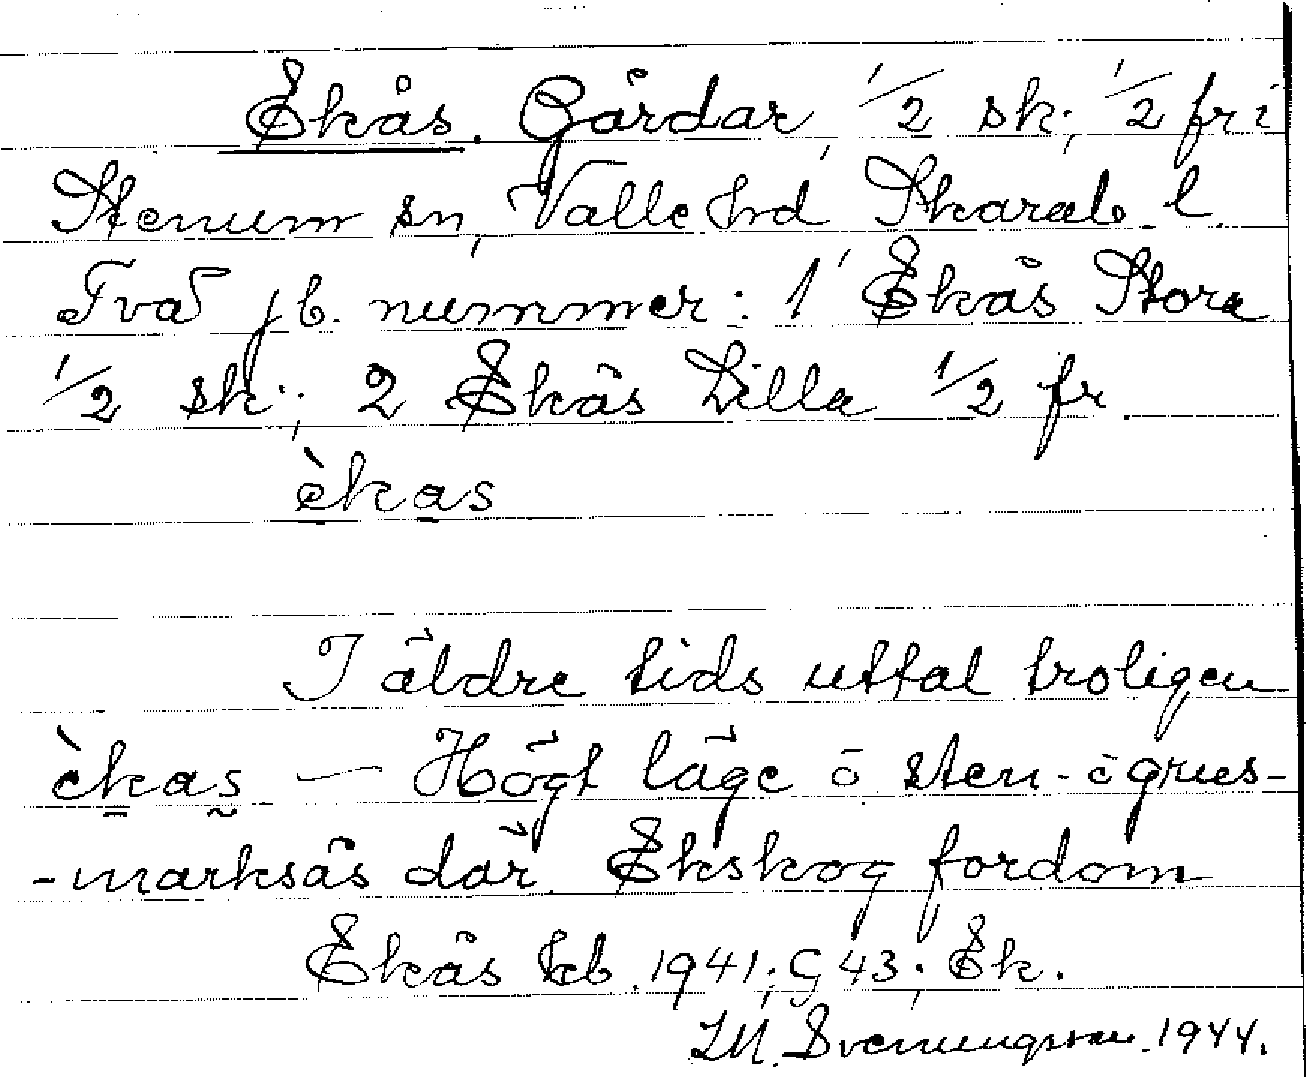 Ekås. Gårdar, 1/2 sk; 1/2 fr i
Stenum sn, Valle hd Skarab. l.
Två jb. nummer: 1 Ekås Stora
1/2 sk; 2 Ekås Lilla 1/2 fr.
èkas
I äldre tids uttal troligen
èkas — Högt läge å sten- o grus-
-marksås där Ekskog fordom
Ekås kb. 1941; G 43; Ek.
Svenungsson 1944.